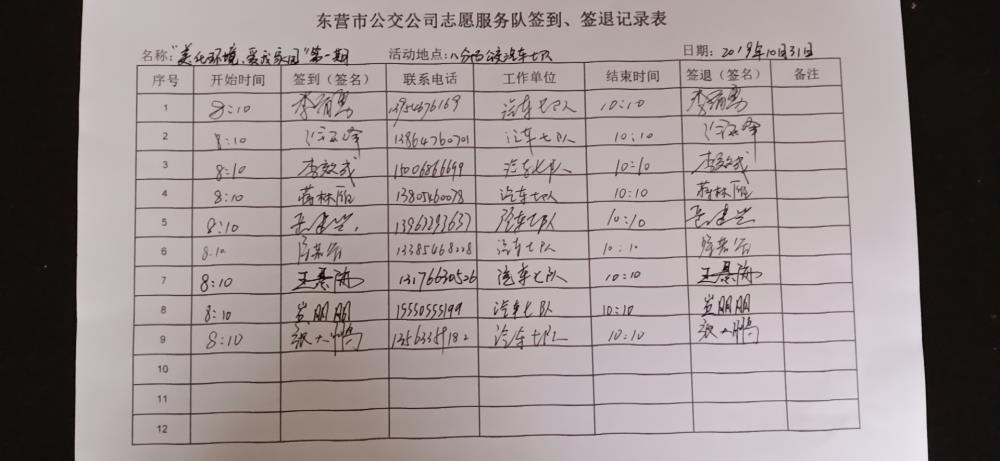 东营市公交公司志愿服务队签到、签退记录表
名称:“美化环境,爱我家园”第一期 活动地点:八分公司公交汽车七队 日期:2019年10月31日
序号 开始时间 签到(签名) 联系电话 工作单位 结束时间 签退(签名) 备注
1 8:10 李有勇 汽车七队 10:10 李有勇
2 8:10 13864760701 汽车七队 10:10
3 8:10 李效武 15006866699 汽车七队 10:10 李效武
4 8:10 蒋林雁 13805460078 汽车七队 10:10 蒋林雁
5 8:10 13963293637 汽车七队 10:10
6 8:10 13385468228 汽车七队 10:10
7 8:10 13176630526 汽车七队 10:10
8 8:10 岁朋朋 15550555199 汽车七队 10:10 岁朋朋
9 8:10 张大鹏 汽车七队 10:10 张大鹏
10
11
12